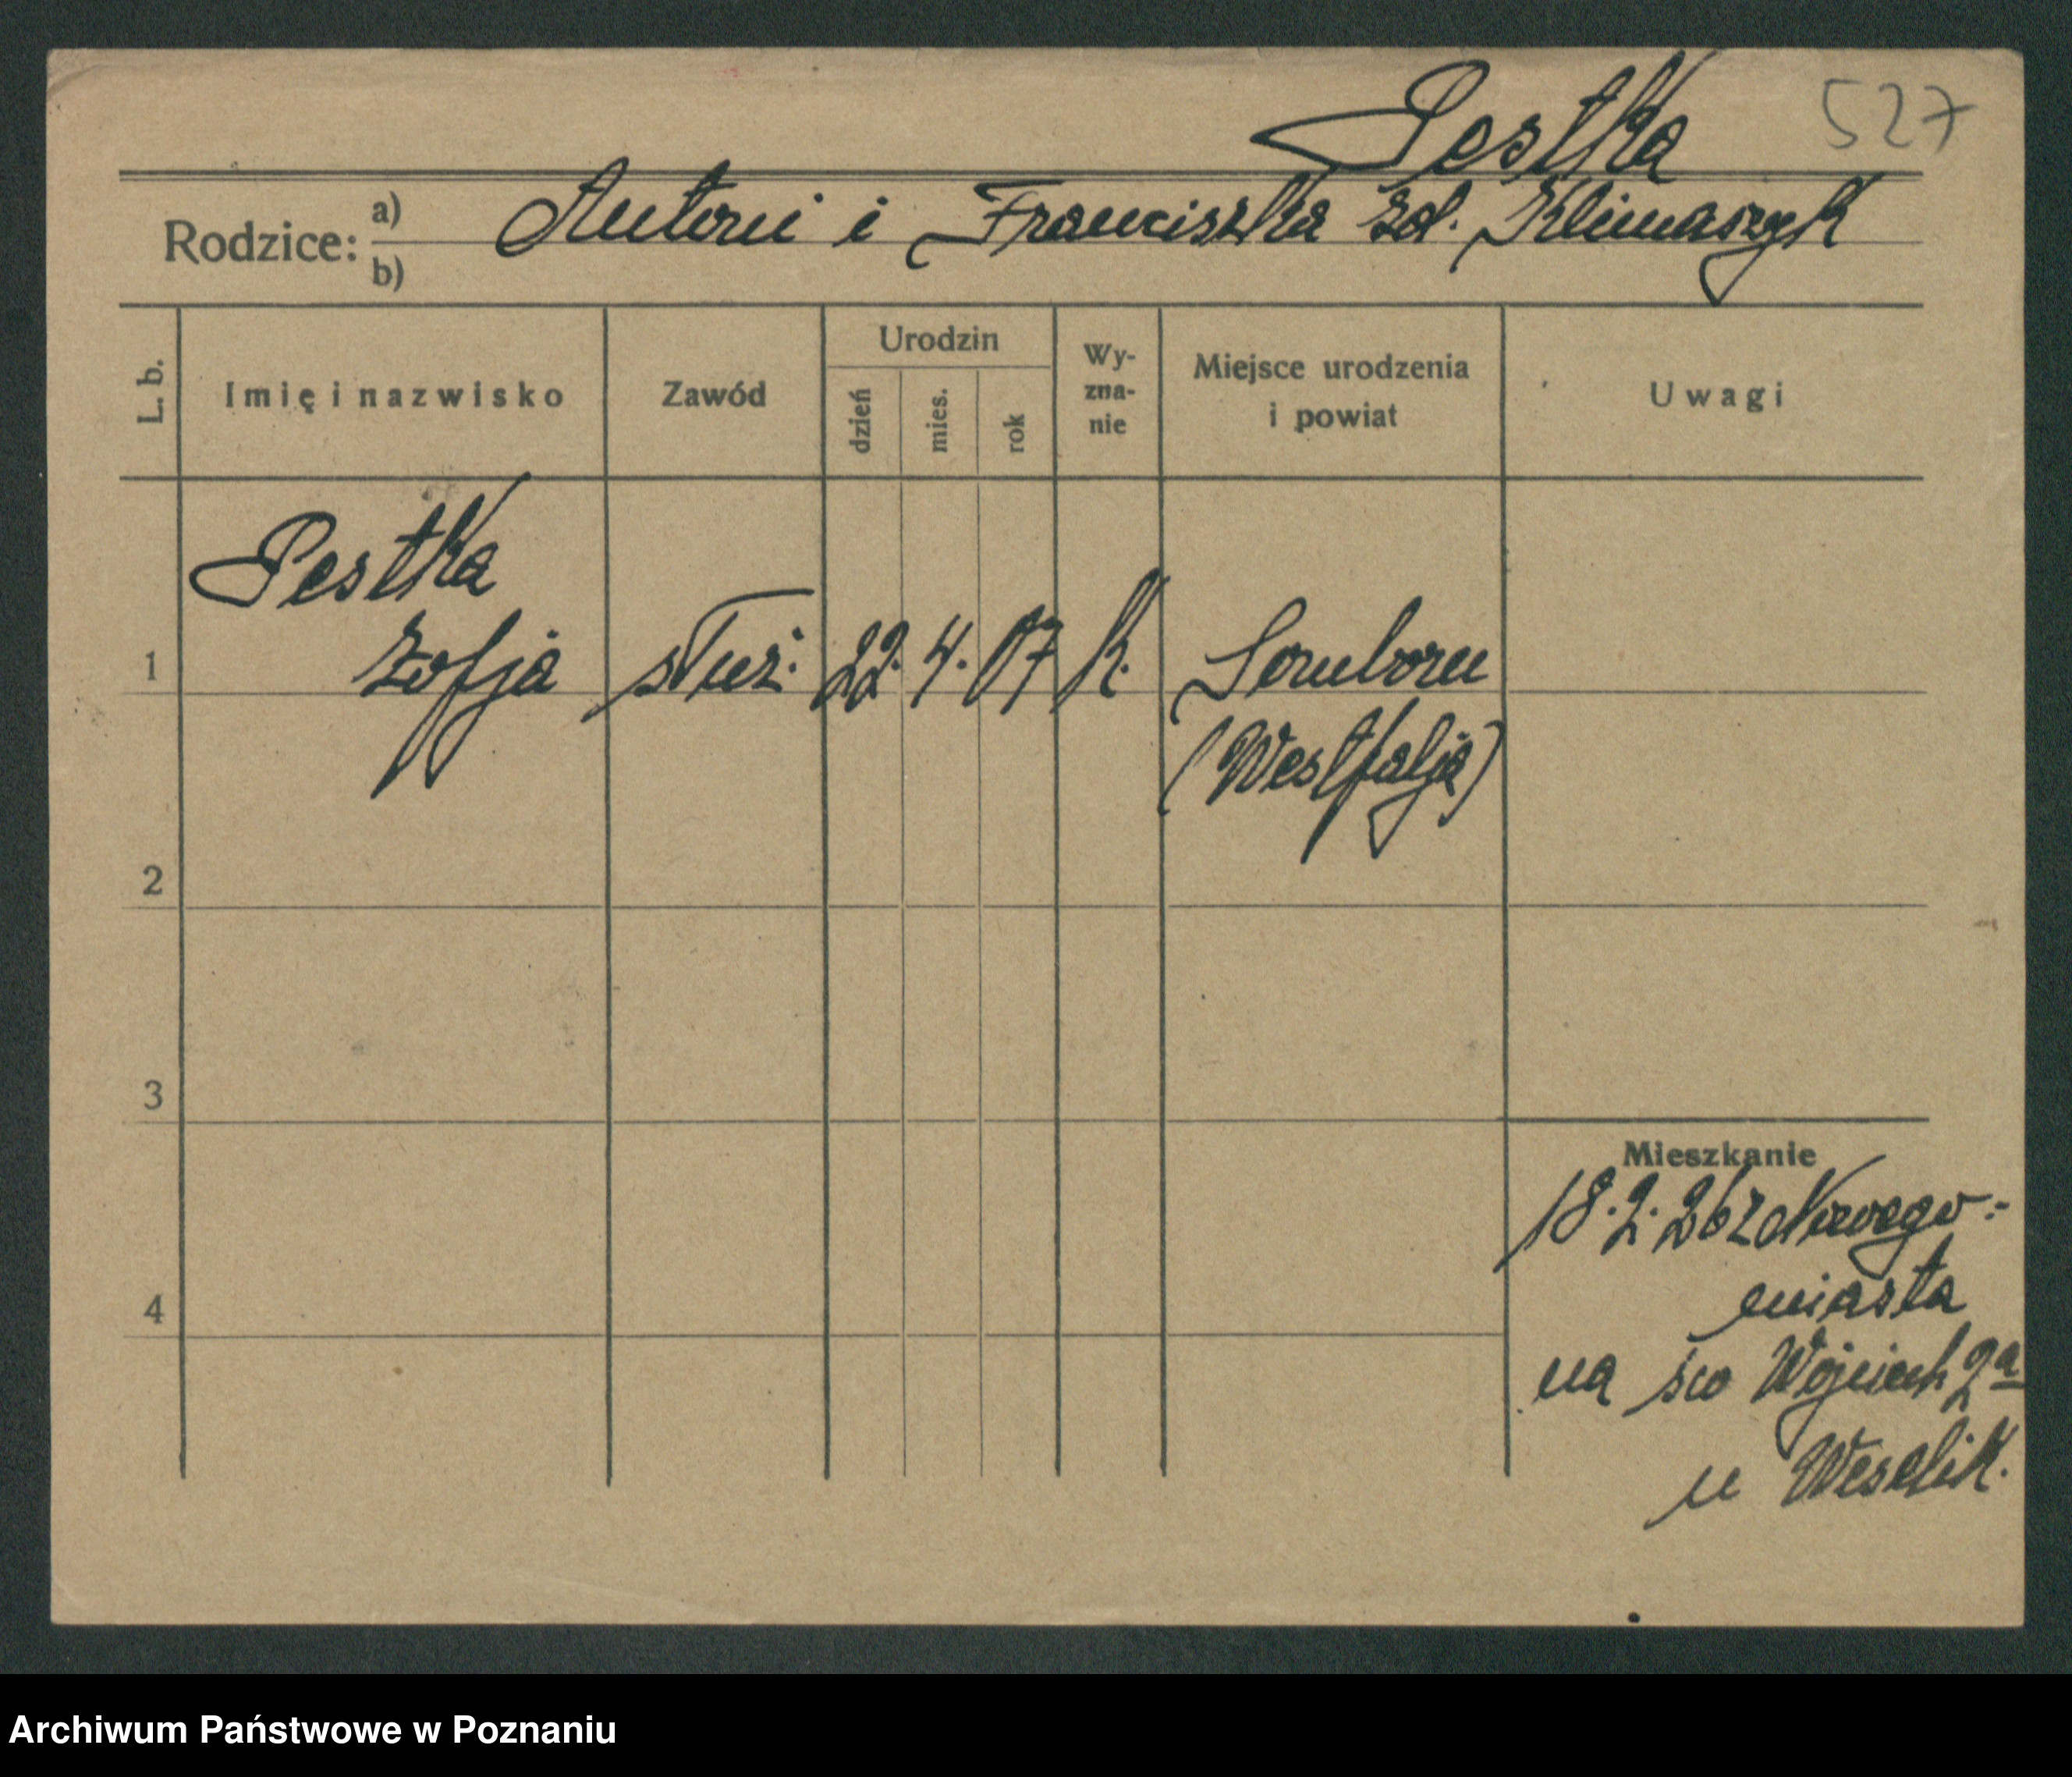 Pestka 527
Rodzice: a) Antoni i Franciszka zd. Klimaszyk
b)
L. b. Imię i nazwisko Zawód Urodzin dzień mies. rok Wy-zna-nie Miejsce urodzenia i powiat Uwagi
Pestka
1 Zofja służ. 22. 4. 07 k.
(Westfalja)
2
3
Mieszkanie
18.2.26 z Nowego-
4 miasta
na św Wojciech 2a
u Weselik.
Archiwum Państwowe w Poznaniu